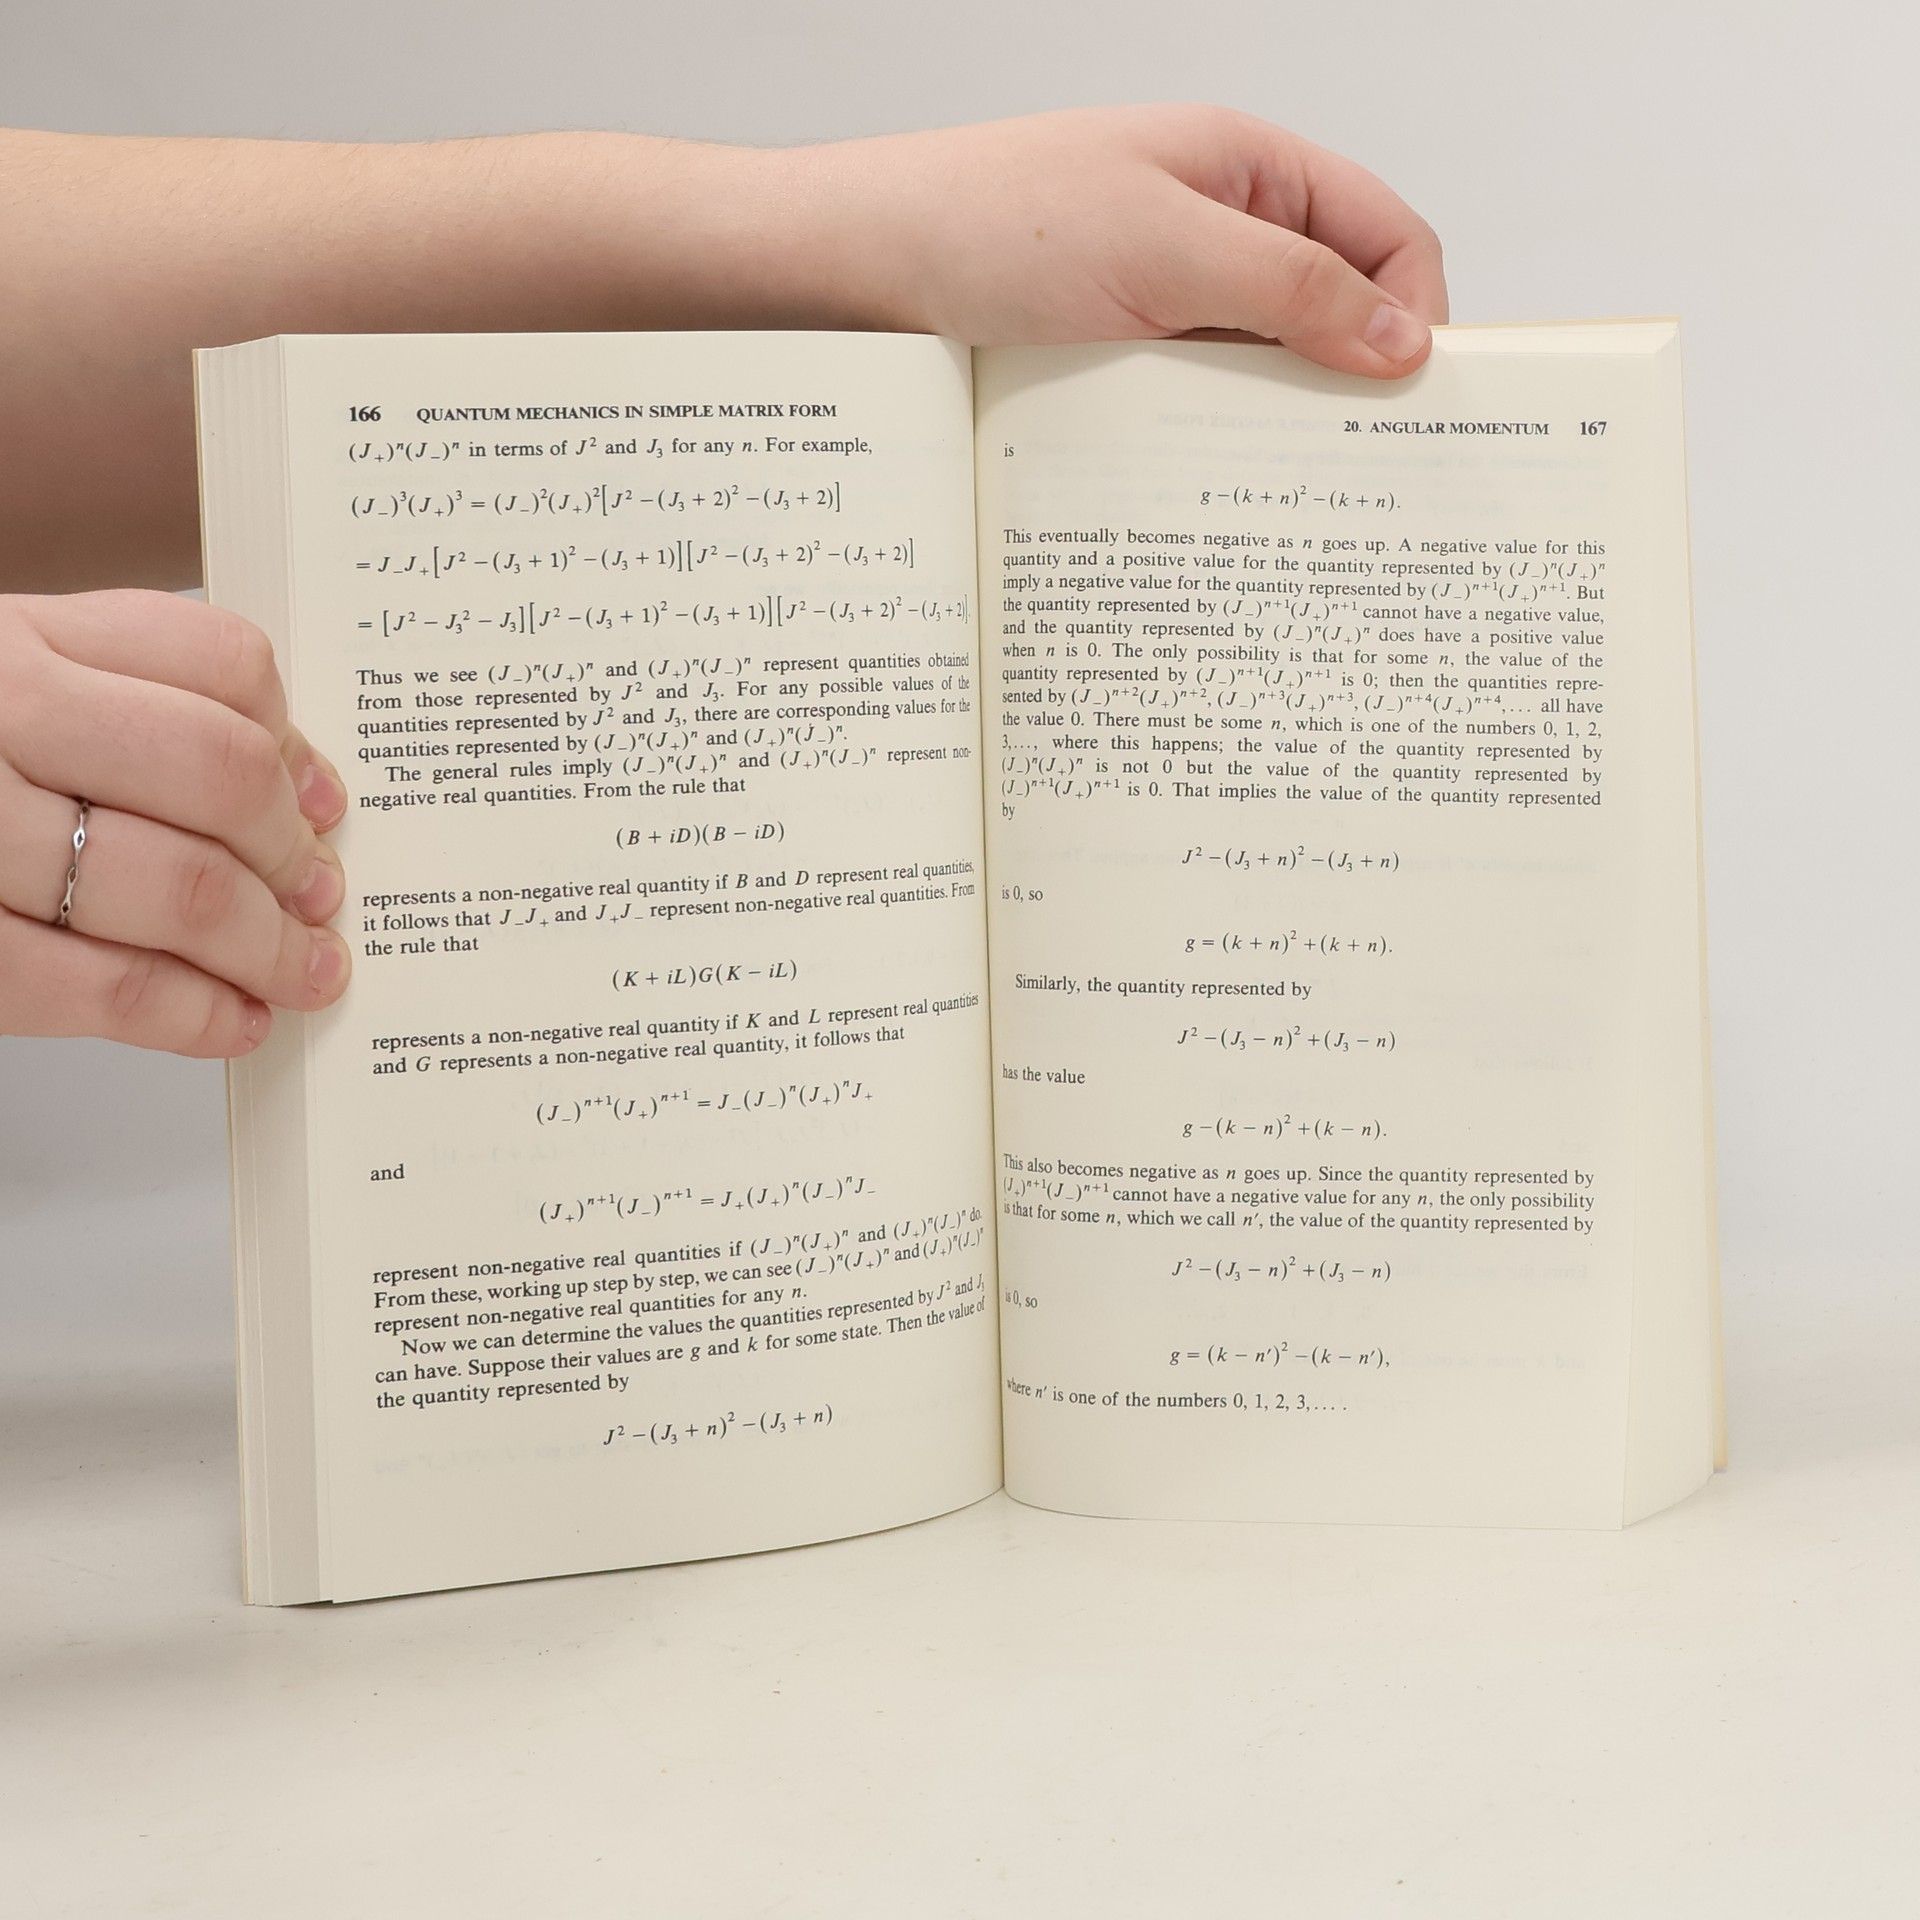 166 QUANTUM MECHANICS IN SIMPLE MATRIX FORM
(J₊)ⁿ(J₋)ⁿ in terms of J² and J₃ for any n. For example,
(J₋)³(J₊)³ = (J₋)²(J₊)²[J² − (J₃ + 2)² − (J₃ + 2)]
= J₋J₊[J² − (J₃ + 1)² − (J₃ + 1)][J² − (J₃ + 2)² − (J₃ + 2)]
= [J² − J₃² − J₃][J² − (J₃ + 1)² − (J₃ + 1)][J² − (J₃ + 2)² − (J₃ + 2)].
Thus we see (J₋)ⁿ(J₊)ⁿ and (J₊)ⁿ(J₋)ⁿ represent quantities obtained
from those represented by J² and J₃. For any possible values of the
quantities represented by J² and J₃, there are corresponding values for the
quantities represented by (J₋)ⁿ(J₊)ⁿ and (J₊)ⁿ(J₋)ⁿ.
The general rules imply (J₋)ⁿ(J₊)ⁿ and (J₊)ⁿ(J₋)ⁿ represent non-
negative real quantities. From the rule that
(B + iD)(B − iD)
represents a non-negative real quantity if B and D represent real quantities,
it follows that J₋J₊ and J₊J₋ represent non-negative real quantities. From
the rule that
(K + iL)G(K − iL)
represents a non-negative real quantity if K and L represent real quantities
and G represents a non-negative real quantity, it follows that
(J₋)ⁿ⁺¹(J₊)ⁿ⁺¹ = J₋(J₋)ⁿ(J₊)ⁿJ₊
and
(J₊)ⁿ⁺¹(J₋)ⁿ⁺¹ = J₊(J₊)ⁿ(J₋)ⁿJ₋
represent non-negative real quantities if (J₋)ⁿ(J₊)ⁿ and (J₊)ⁿ(J₋)ⁿ do.
From these, working up step by step, we can see (J₋)ⁿ(J₊)ⁿ and (J₊)ⁿ(J₋)ⁿ
represent non-negative real quantities for any n.
Now we can determine the values the quantities represented by J² and J₃
can have. Suppose their values are g and k for some state. Then the value of
the quantity represented by
J² − (J₃ + n)² − (J₃ + n)
20. ANGULAR MOMENTUM 167
is
g − (k + n)² − (k + n).
This eventually becomes negative as n goes up. A negative value for this
quantity and a positive value for the quantity represented by (J₋)ⁿ(J₊)ⁿ
imply a negative value for the quantity represented by (J₋)ⁿ⁺¹(J₊)ⁿ⁺¹. But
the quantity represented by (J₋)ⁿ⁺¹(J₊)ⁿ⁺¹ cannot have a negative value,
and the quantity represented by (J₋)ⁿ(J₊)ⁿ does have a positive value
when n is 0. The only possibility is that for some n, the value of the
quantity represented by (J₋)ⁿ⁺¹(J₊)ⁿ⁺¹ is 0; then the quantities repre-
sented by (J₋)ⁿ⁺²(J₊)ⁿ⁺², (J₋)ⁿ⁺³(J₊)ⁿ⁺³, (J₋)ⁿ⁺⁴(J₊)ⁿ⁺⁴,... all have
the value 0. There must be some n, which is one of the numbers 0, 1, 2,
3,..., where this happens; the value of the quantity represented by
(J₋)ⁿ(J₊)ⁿ is not 0 but the value of the quantity represented by
(J₋)ⁿ⁺¹(J₊)ⁿ⁺¹ is 0. That implies the value of the quantity represented
by
J² − (J₃ + n)² − (J₃ + n)
is 0, so
g = (k + n)² + (k + n).
Similarly, the quantity represented by
J² − (J₃ − n)² + (J₃ − n)
has the value
g − (k − n)² + (k − n).
This also becomes negative as n goes up. Since the quantity represented by
(J₊)ⁿ⁺¹(J₋)ⁿ⁺¹ cannot have a negative value for any n, the only possibility
is that for some n, which we call n′, the value of the quantity represented by
J² − (J₃ − n)² + (J₃ − n)
is 0, so
g = (k − n′)² − (k − n′),
where n′ is one of the numbers 0, 1, 2, 3,....